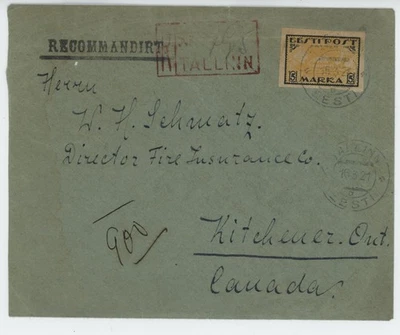 RECOMMANDIRT
TALLINN
EESTI POST
MARKA
EESTI
Herrn
W. H. Schmatz.
Director Fire Insurance Co.
EESTI
Kitchener-Ont.
Canada.
900